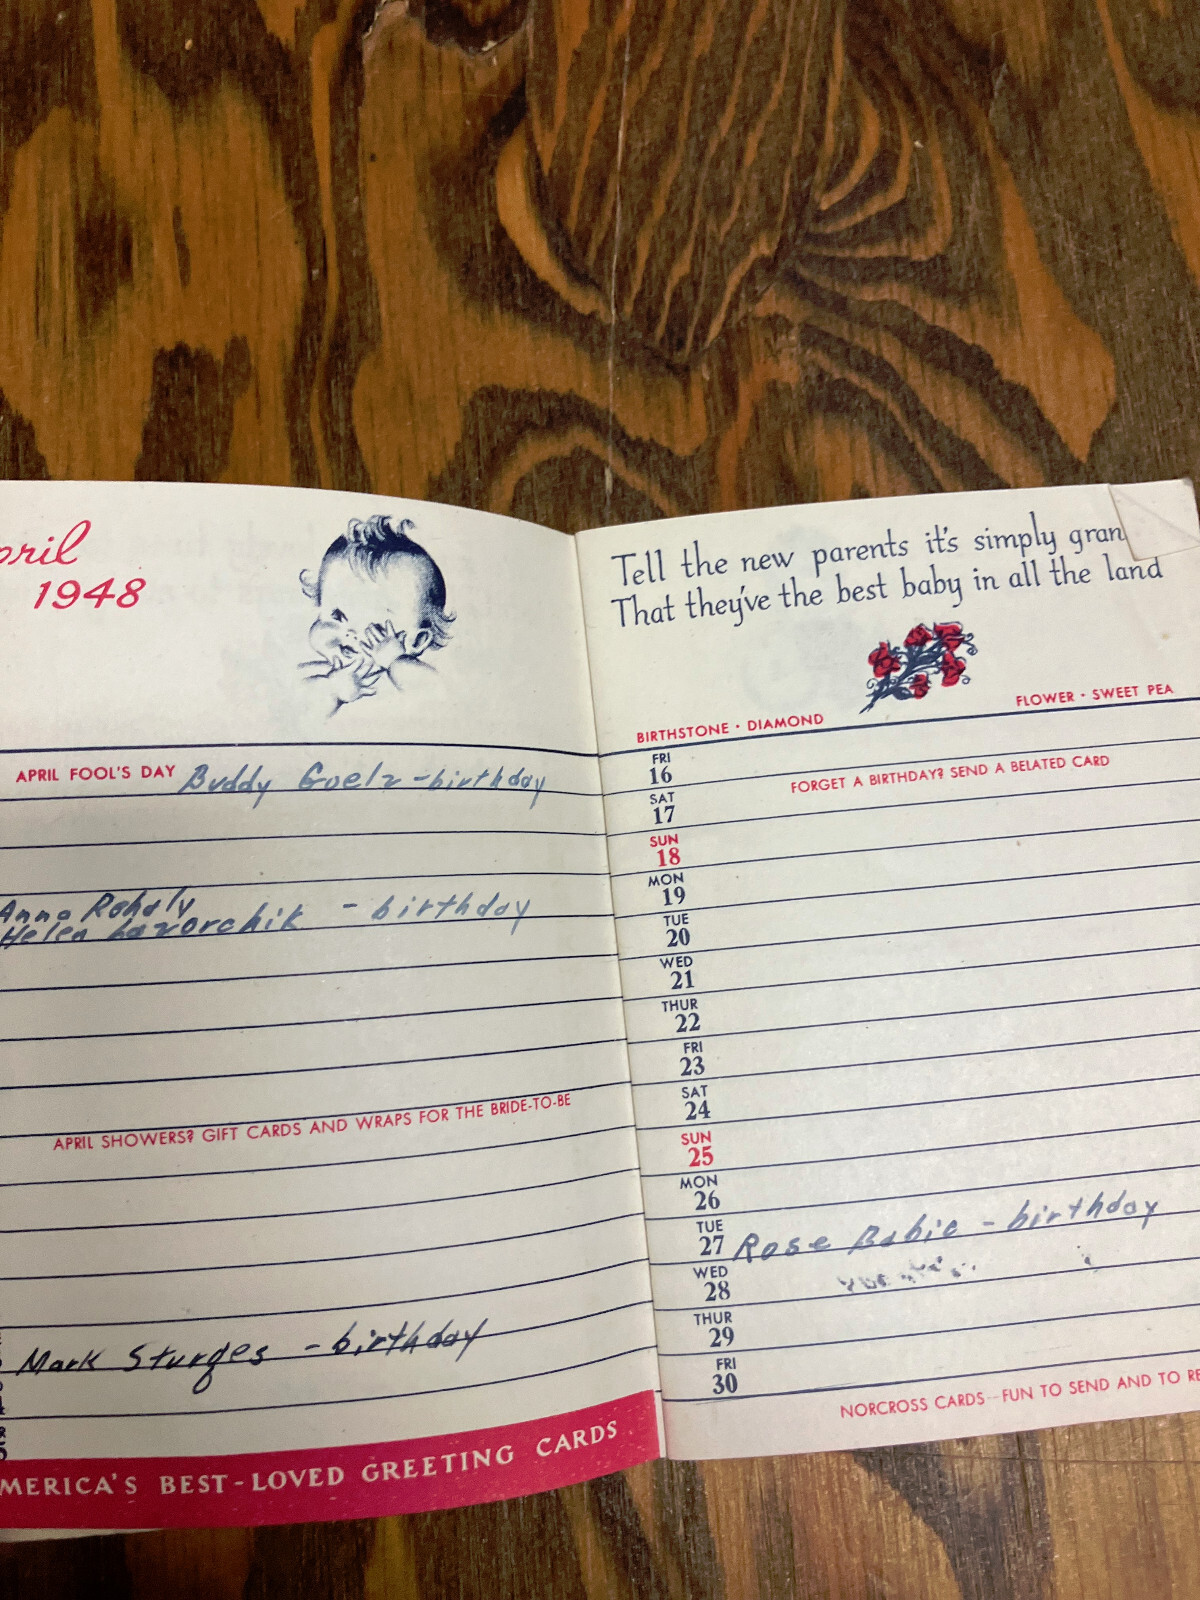 pril
1948
APRIL FOOL'S DAY Buddy Goelz - birthday
Anna Rohaly
Helen Lavorchik - birthday
APRIL SHOWERS? GIFT CARDS AND WRAPS FOR THE BRIDE-TO-BE
Mark Sturges - birthday
MERICA'S BEST-LOVED GREETING CARDS
Tell the new parents it's simply gran
That they've the best baby in all the land
BIRTHSTONE · DIAMOND
FLOWER · SWEET PEA
FRI
16
FORGET A BIRTHDAY? SEND A BELATED CARD
SAT
17
SUN
18
MON
19
TUE
20
WED
21
THUR
22
FRI
23
SAT
24
SUN
25
MON
26
TUE
27 Rose Babic - birthday
WED
28
THUR
29
FRI
30
NORCROSS CARDS—FUN TO SEND AND TO RE